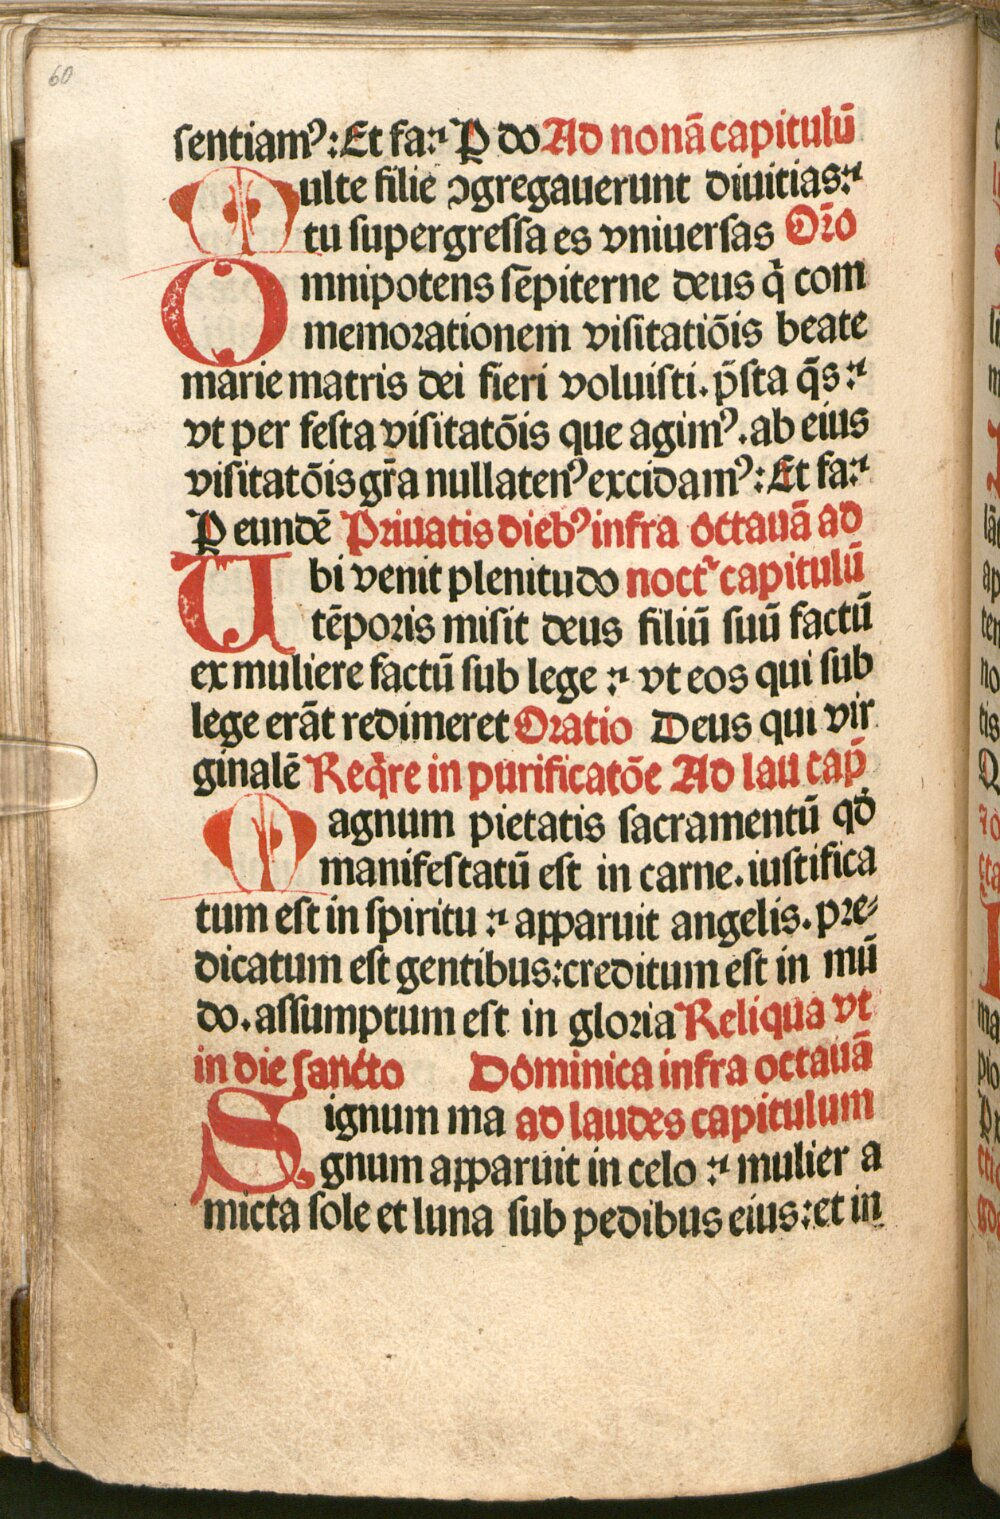 60
sentiamꝰ: Et fa⁊ P do Ad nonā capitulū
Multe filie ↄgregauerunt diuitias:
tu supergressa es vniuersas Oro̅
Omnipotens sēpiterne deus q̇ com
memorationem visitatiōis beate
marie matris dei fieri voluisti. p̄sta q̄s:
vt per festa visitatōis que agimꝰ. ab eius
visitatōis gr̄a nullatenꝰ excidamꝰ: Et fa⁊
P eundē Priuatis diebꝰ infra octauā ad
Ubi venit plenitudo noct᷑ capitulū
tēporis misit deus filiū suū factū
ex muliere factū sub lege : vt eos qui sub
lege erāt redimeret Oratio Deus qui vir
ginalē Req̇re in purificatōe Ad lau cap̄
Magnum pietatis sacramentū qd̄
manifestatū est in carne. iustifica
tum est in spiritu : apparuit angelis. pre⸗
dicatum est gentibus: creditum est in mū
do. assumptum est in gloria Reliqua vt
in die sancto Dominica infra octauā
Signum ma ad laudes capitulum
gnum apparuit in celo : mulier a
micta sole et luna sub pedibus eius: et in